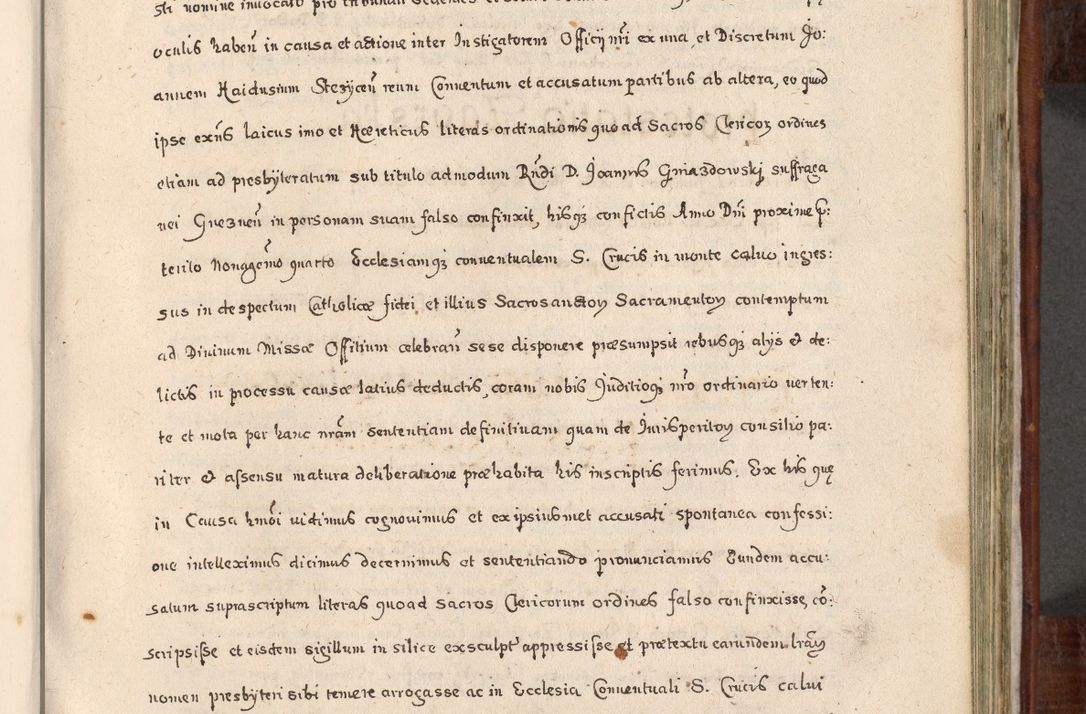 sti nomine invocato pro tribunali sedentes et
oculis haben̄ in causa et actione inter Instigatorem Officij nr̄i ex una, et Discretum Jo:
annem Haidusium Stezÿcen̄ reum Conventum et accusatum partibus ab altera, eo quod
ipse exn̄s laicus imo et Hæreticus literas ordinationis quoad Sacros Clericoꝝ ordines
etiam ad presbÿteratum sub titulo admodum Rn̄di D. Joannis Gniazdowskj suffraga
nei Gneznen̄ in personam suam falso confinxit, hisqꝫ confictis Anno Dn̄i proxime p̄:
terito Nonagēmo quarto Ecclesiamqꝫ conventualem S. Crucis in monte calvo ingres:
sus in despectum Catholicæ fidei et illius Sacrosanctoꝝ Sacramentoꝝ contemptum
ad Divinum Missæ Offitium celebran̄ sese disponere præsumpsit rebusqꝫ alÿs & de:
lictis in processu causæ latius deductis, coram nobis Juditioqꝫ nr̄o ordinario verten:
te et mota per hanc nr̄am sententiam definitivam quam de Jurisperitoꝝ consilio pa:
riter & assensu matura deliberatione præhabita his inscriptis ferimus. Ex his quę
in Causa hmōi vidimus cognovimus et ex ipsiusmet accusati spontanea confessi:
one intelleximus dicimus decernimus et sententiando pronunciamus Eundem accu:
satum suprascriptum literas quoad sacros Clericorum ordines falso confinxisse, cō:
scripsisse et eisdem sigillum in silice exsculpt̄ appressisse et prætextu earundem lr̄aꝝ
nomen presbÿteri sibi temere arrogasse ac in Ecclesia Conventuali S. Crucis calvi